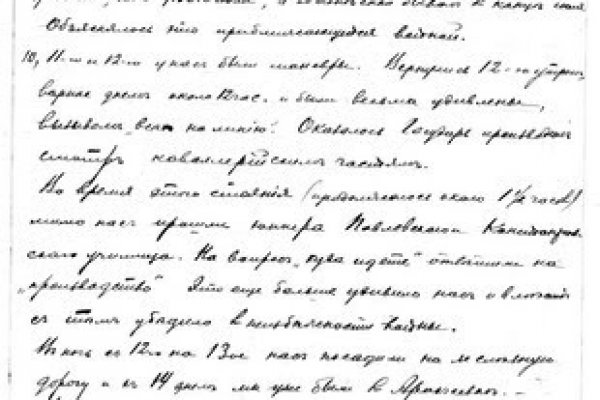 Объяснялось это приближающейся войной.
10, 11-го и 12-го у нас были маневры. Вернулись 12-го утром,
вернее днем около 12 час. и были весьма удивлены,
вызовом „всех на линию“. Оказалось Государь производит
смотр кавалерийским частям.
Во время этого стояния (продолжалось около 1½ часов)
мимо нас прошли юнкера Павловского
училища. На вопрос „куда идете“ отвечали на
„производство“ Это еще больше удивило нас и
с тем убедило в неизбежности войны.
В ночь с 12-го на 13-ое нас посадили на железную
дорогу и к 14 днем мы уже были в